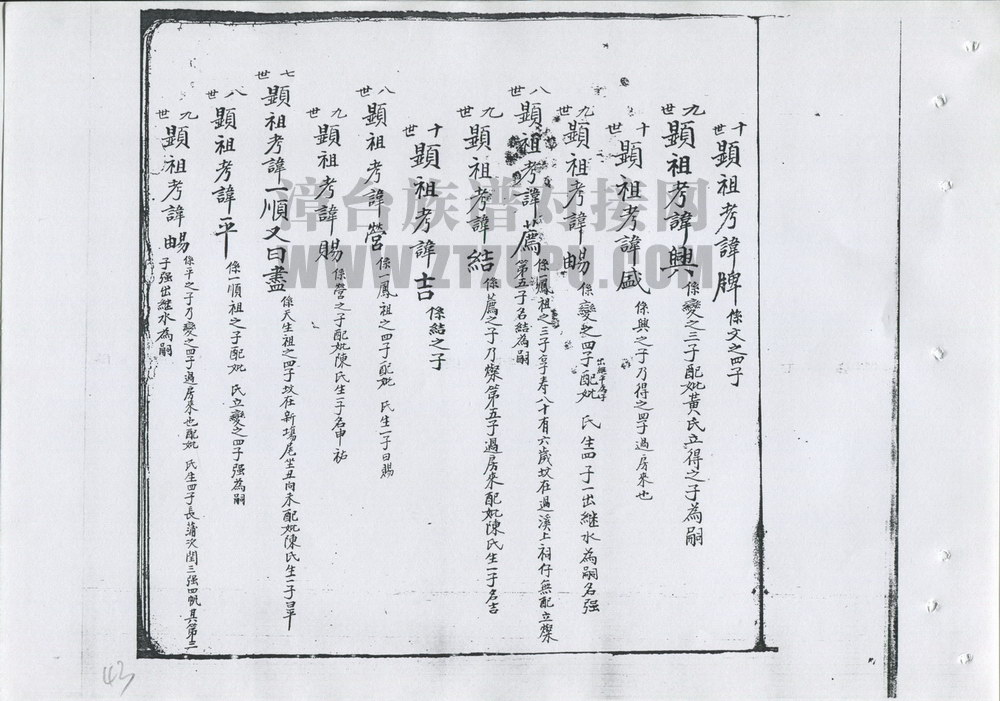 十世 顯祖考諱牌 係文之四子
九世 顯祖考諱興 係變之三子配妣黃氏立得之子為嗣
十世 顯祖考諱盛 係興之子乃得之四子過房來也
九世 顯祖考諱賜 係變之四子配妣 氏生四子一出繼水為嗣名强
出繼平為子
八世 顯祖考諱薦 係一鳳祖之三子享壽八十有六歲坟在過溪上祠仔無配立燦
第五子名結為嗣
九世 顯祖考諱結 係薦之子乃燦第五子過房來配妣陳氏生一子名吉
十世 顯祖考諱吉 係結之子
八世 顯祖考諱營 係一鳳祖之四子配妣 氏生一子曰賜
九世 顯祖考諱賜 係營之子配妣陳氏生二子名申祐
七世 顯祖考諱一順又曰盡 係天生祖之四子坟在新塲尾坐丑向未配妣陳氏生一子曰平
八世 顯祖考諱平 係一順祖之子配妣 氏立變之四子强為嗣
九世 顯祖考諱賜 係平之子乃變之四子過房來也配妣 氏生四子長蒲次閏三强四帆其第三
子强出繼水為嗣
漳台族谱对接网
WWW.ZTZUPU.COM
43